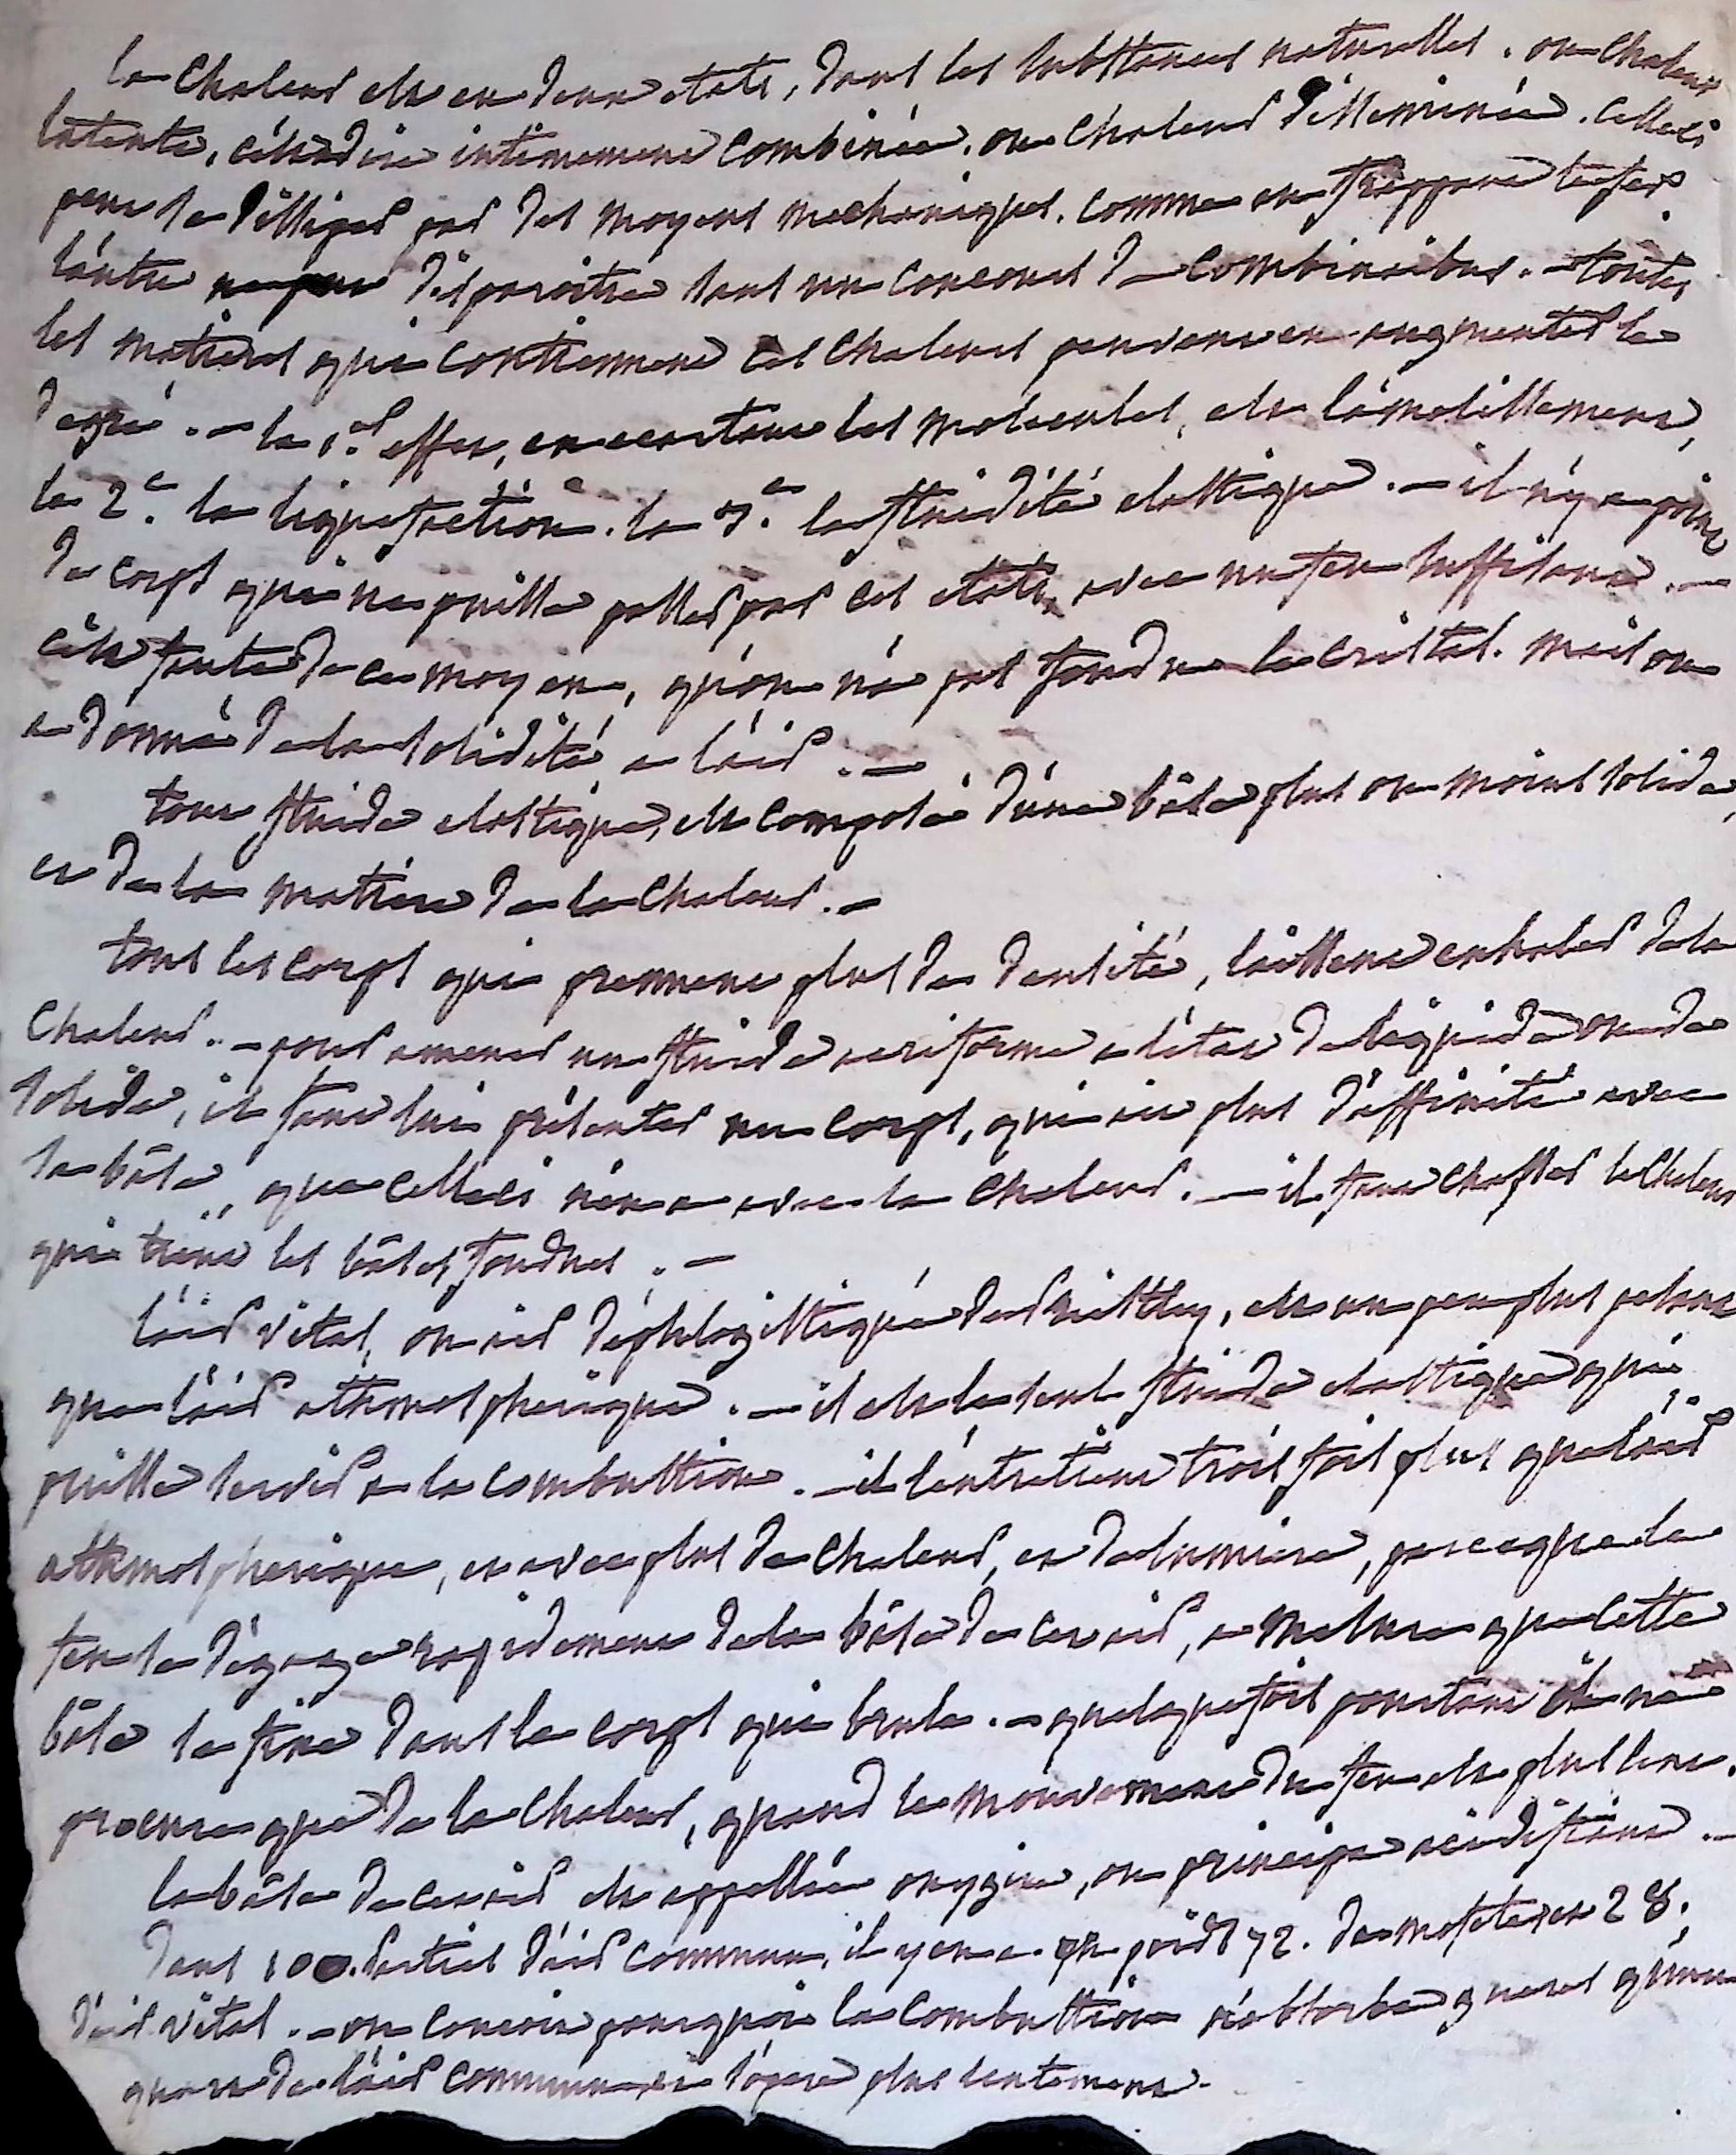 la chaleur est en deux etats, dans les substances naturelles. ou chaleur
latente, c'est a dire intimement combinée, ou chaleur disseminée. celleci
peut se dissiper par des moyens mechaniques. comme en frappant le fer.
l'autre ne peut disparoitre sans un concours de combinaisons. - toutes
les matieres qui contiennent ces chaleurs peuvent en augmenter le
degré. - le 1.er effet, en ecartant les molecules, est l'amollissement,
le 2.e la liquefaction. le 3.e la fluidité elastique. - il n'y a point
de corps qui ne puisse passer par ces etats, avec un feu suffisant. -
c'est faute de ce moyen, qu'on n'a pas fondre le cristal. mais on
a donné de la solidité a l'air. -
tout fluide elastique, est composé d'une bâse plus ou moins solide,
et de la matiere de la chaleur. -
tous les corps qui prennent plus de densité, laissent exhaler de la
chaleur. - pour amener un fluide aeriforme a l'état de liquide ou de
solide, il faut lui présenter un corps, qui ait plus d'affinité avec
sa bâse, que celleci n'en a avec la chaleur. - il faut chasser la chaleur
qui tient les bâses fondues. -
l'air vital, ou air déphlogistiqué de Priestley, est un peu plus pesant
que l'air athmospherique. - il est le seul fluide elastique qui
puisse servir a la combustion. - il l'entretient trois fois plus que l'air
athmospherique, et avec plus de chaleur, et de lumiere, parce que le
feu se dégage rapidement de la bâse de cet air, a mesure que cette
bâse se fixe dans le corps qui brule. - quelquefois pourtant il ne
procure que de la chaleur, quand le mouvement du feu est plus lent.
la bâse de cet air est appellée oxygine, ou principe acidifiant. -
dans 100. parties d'air commun, il y en a en poids 72. de mofete, et 28.
d'air vital. - on concoit pourquoi la combustion n'absorbe gueres qu'un
quart de l'air commun, et s'opere plus lentement.